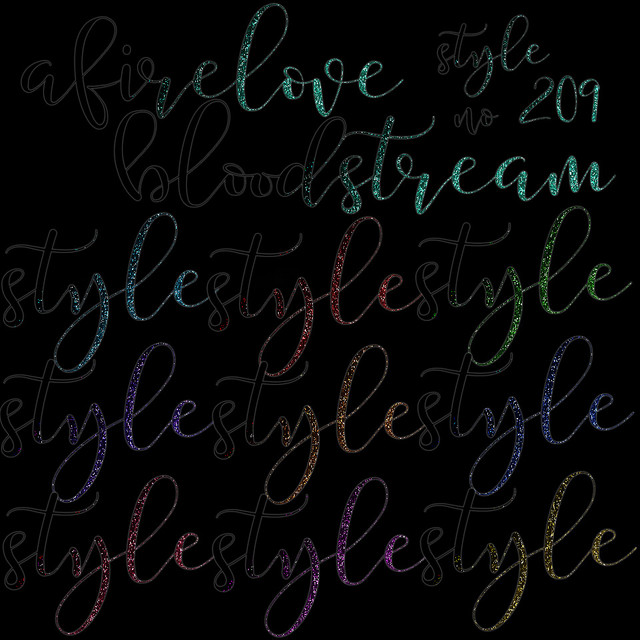 afire love
style
no 209
bloodstream
style style style
style style style
style style style